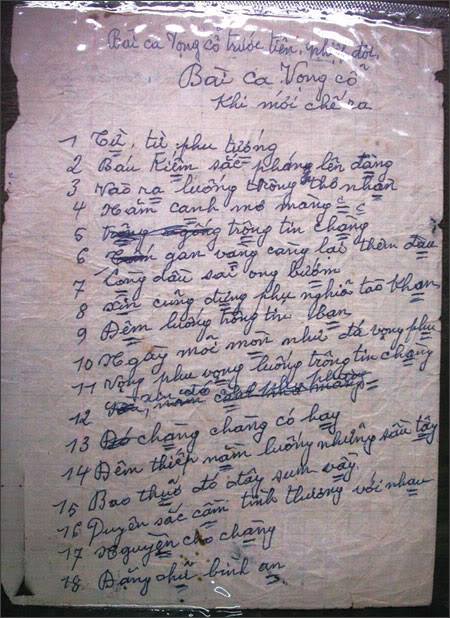 Bài ca Vọng cổ trước tiên, nhịp đôi.
Bài ca Vọng cổ
Khi mới chế ra
1 Từ, từ phu tướng
2 Báu Kiếm sắc phong lên đàng
3 Vào ra luống trông tin nhạn
4 Năm canh mơ màng
5 trông tin chàng
6 gan vàng càng lại thêm đau
7 Lòng dầu sai ong bướm
8 xin cũng đừng phụ nghĩa tào khan
9 Đêm luống trông tin bạn
10 Ngày mỏi mòn như đá vọng phu
11 Vọng phu vọng luống trông tin chàng
12
13 chàng chàng có hay
14 Đêm thiếp nằm luống những sầu tây
15 Bao thuở đó đây sum vầy
16 Duyên sắc cầm tình thương với nhau
17 Nguyện cho chàng
18 Đặng chữ bình an